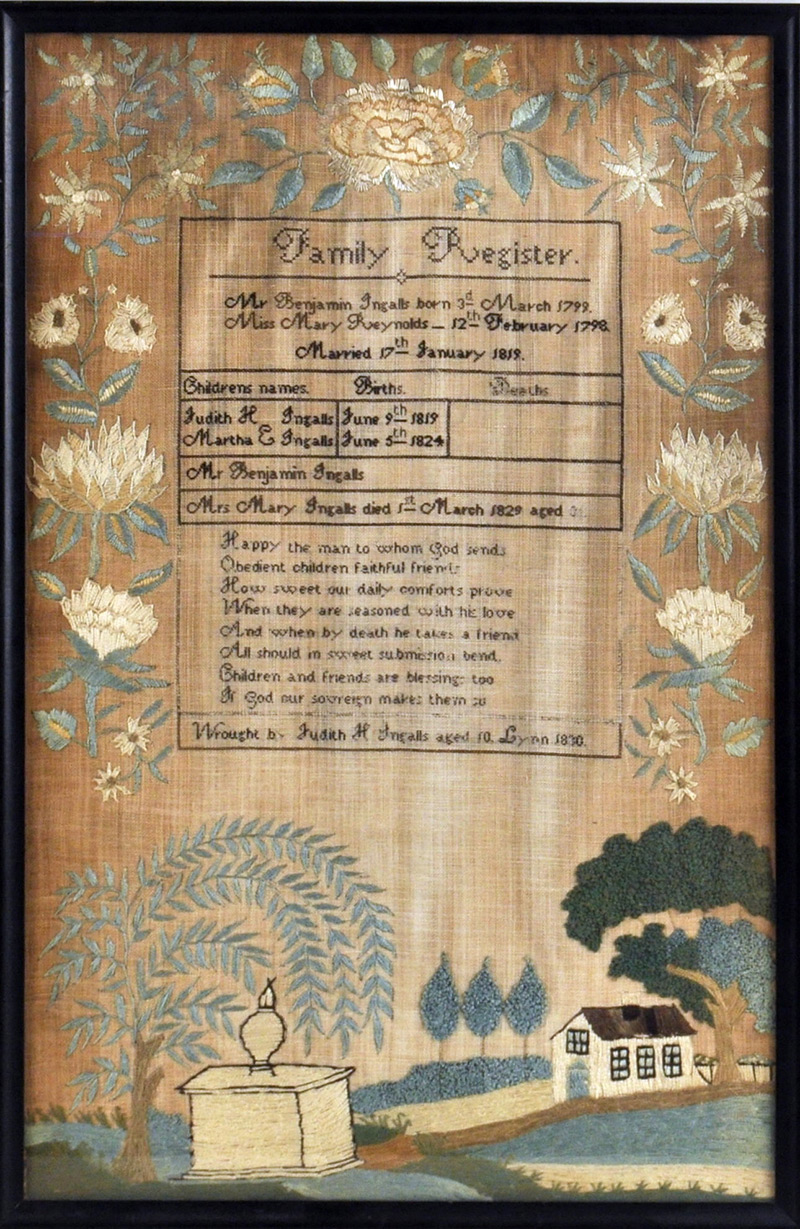 Family Register.
Mr Benjamin Ingalls born 3d March 1799.
Miss Mary Reynolds _ 12th February 1798.
Married 17th January 1819.
Childrens names. Births. Deaths
Judith H Ingalls June 9th 1819
Martha E Ingalls June 5th 1824
Mr Benjamin Ingalls
Mrs Mary Ingalls died 1st March 1829 aged
Happy the man to whom God sends
Obedient children faithful friends
How sweet our daily comforts prove
When they are seasoned with his love
And when by death he takes a friend
All should in sweet submission bend.
Children and friends are blessings too
If God our sovreign makes them so
Wrought by Judith H Ingalls aged 10. Lynn 1830.